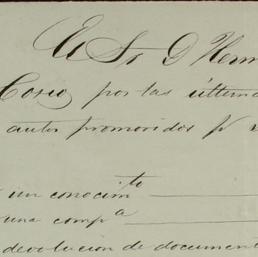 El Sr D Herm
Cosio por las últerna
autos promovidos pr
un conocimto
una compa
devolucion de document